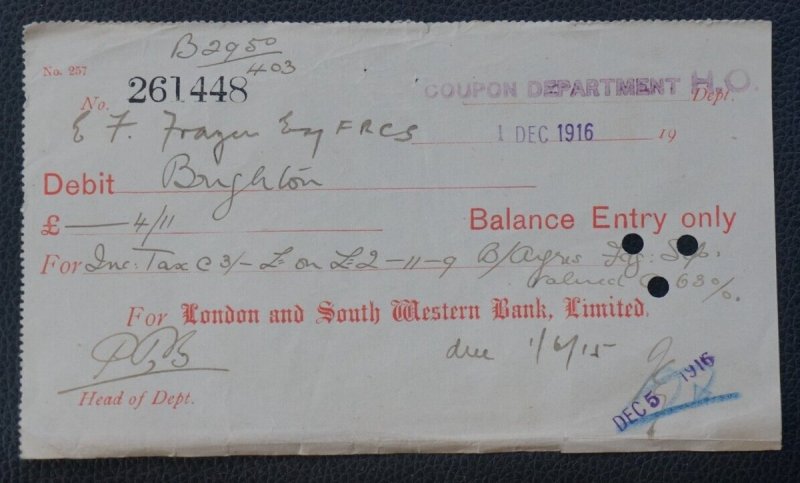 B2950
403
No. 257
No. 261448
COUPON DEPARTMENT H.O. Dept.
E F. Frazer Esq FRCS
1 DEC 1916 19
Debit Brighton
£ — 4/11
Balance Entry only
For Inc: Tax @ 3/- £ on £2-11-9 B/Ayres
valued @ 63%.
For London and South Western Bank, Limited.
due 1/6/15
Head of Dept.
DEC 5 1916